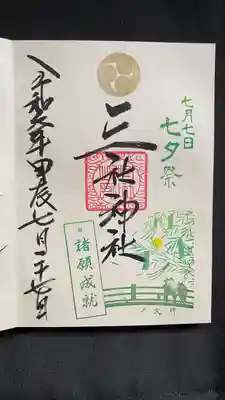 七月七日
七夕祭
三社神社
令和六年甲辰七月二十七日
諸願成就